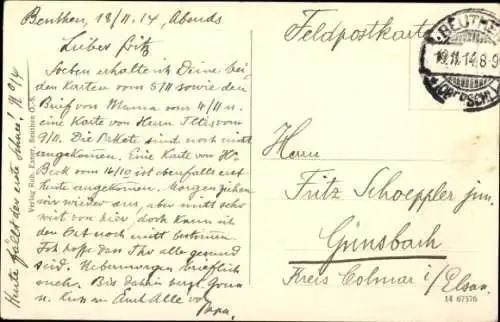 Beuthen, 18/11.14, Abends
Lieber Fritz
Soeben erhalte ich Deine bei-
den Karten vom 5/11 sowie den
Brief von Mama vom 4/11 u.
eine Karte von Herrn Ittis vom
9/11. Die Pakete sind noch nicht
angekommen. Eine Karte von H
Beck vom 16/10 ist ebenfalls erst
heute angekommen. Morgen ziehen
wir wieder aus, aber nicht sehr
weit von hier, doch kann ich
den Ort noch nicht bestimmen.
Ich hoffe dass Ihr alle gesund
seid. Uebermorgen brieflich
mehr. Bis dahin herzl. Gruss
u. Kuss an Euch Alle von
Papa.
Heute fällt der erste Schnee!
Verlag Rob. Exner, Beuthen O.-S.
Feldpostkarte
BEUTHEN
19.11.14.8-9
(OBERSCHL.)
Herrn
Fritz Schoeppler jun.
Günsbach
Kreis Colmar i/Elsass
14 67576